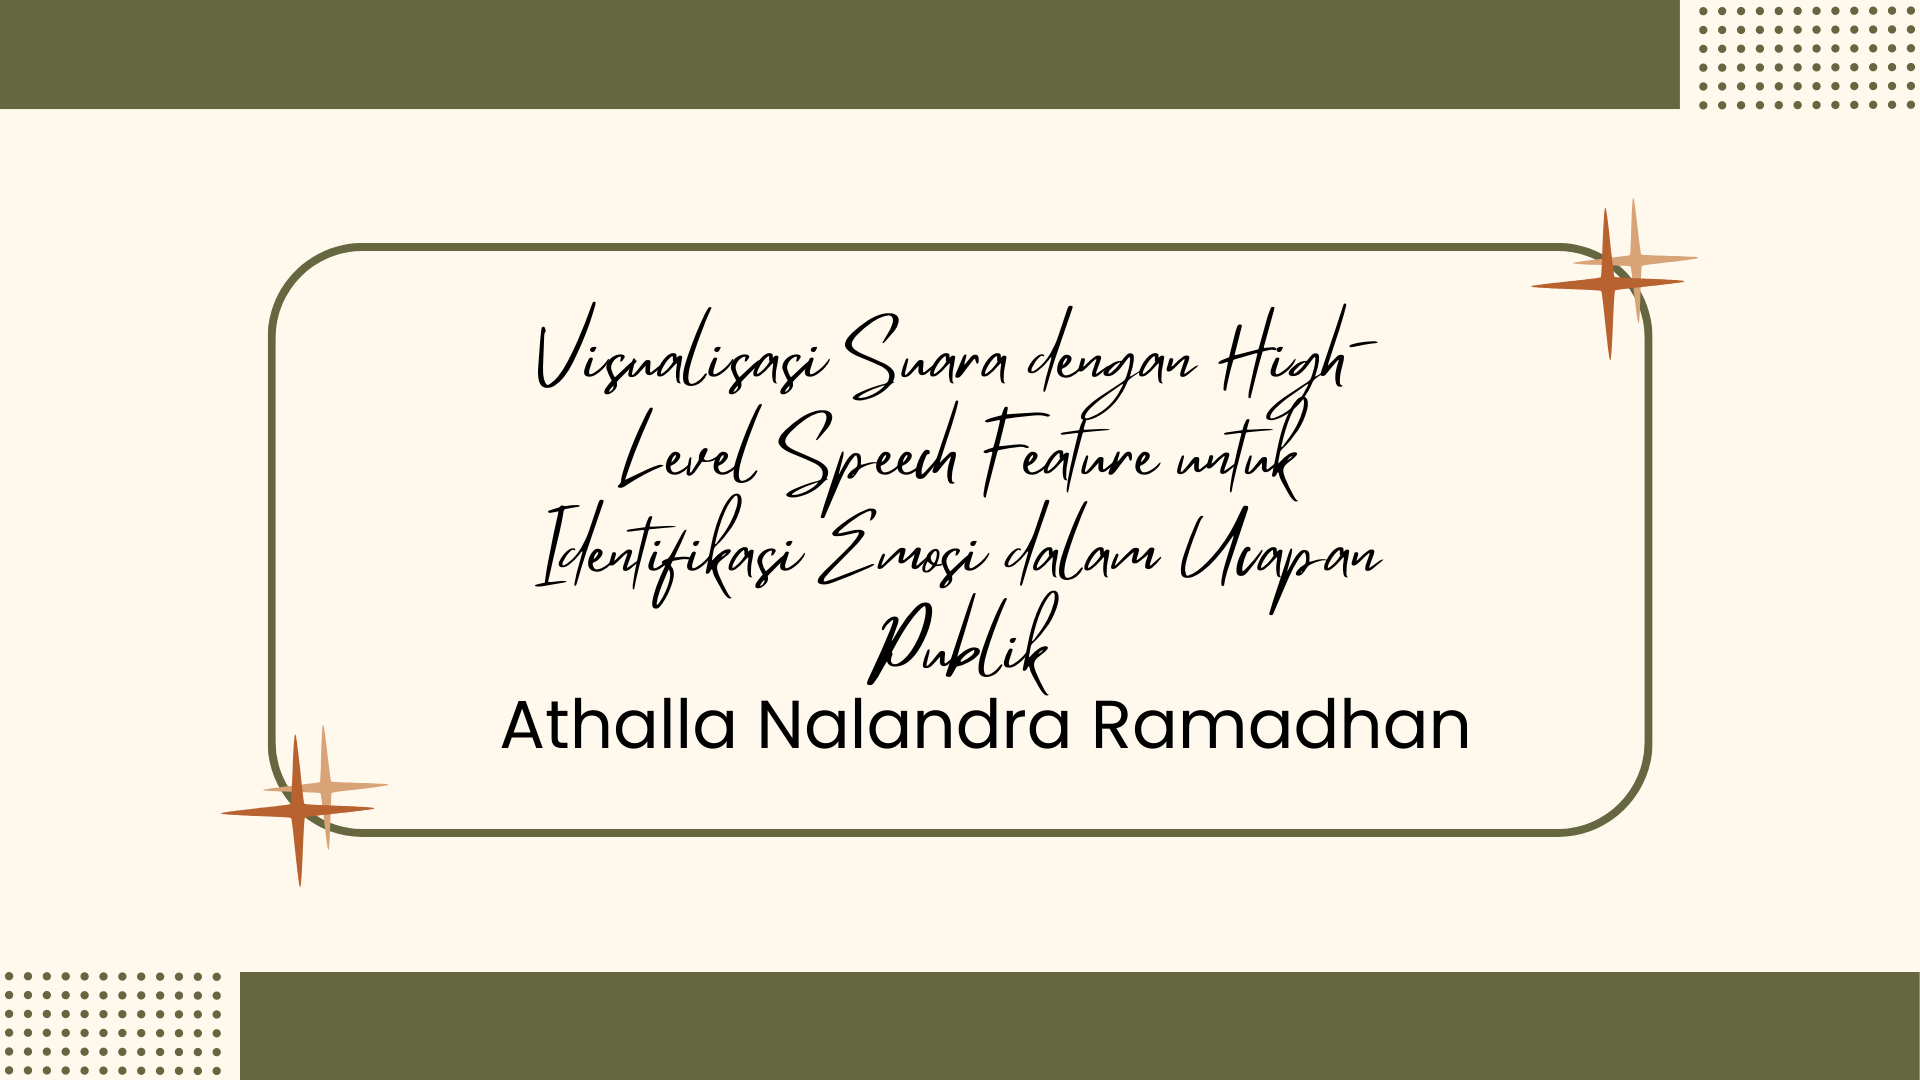 Visualisasi Suara dengan High-
Level Speech Feature untuk
Identifikasi Emosi dalam Ucapan
Publik
Athalla Nalandra Ramadhan